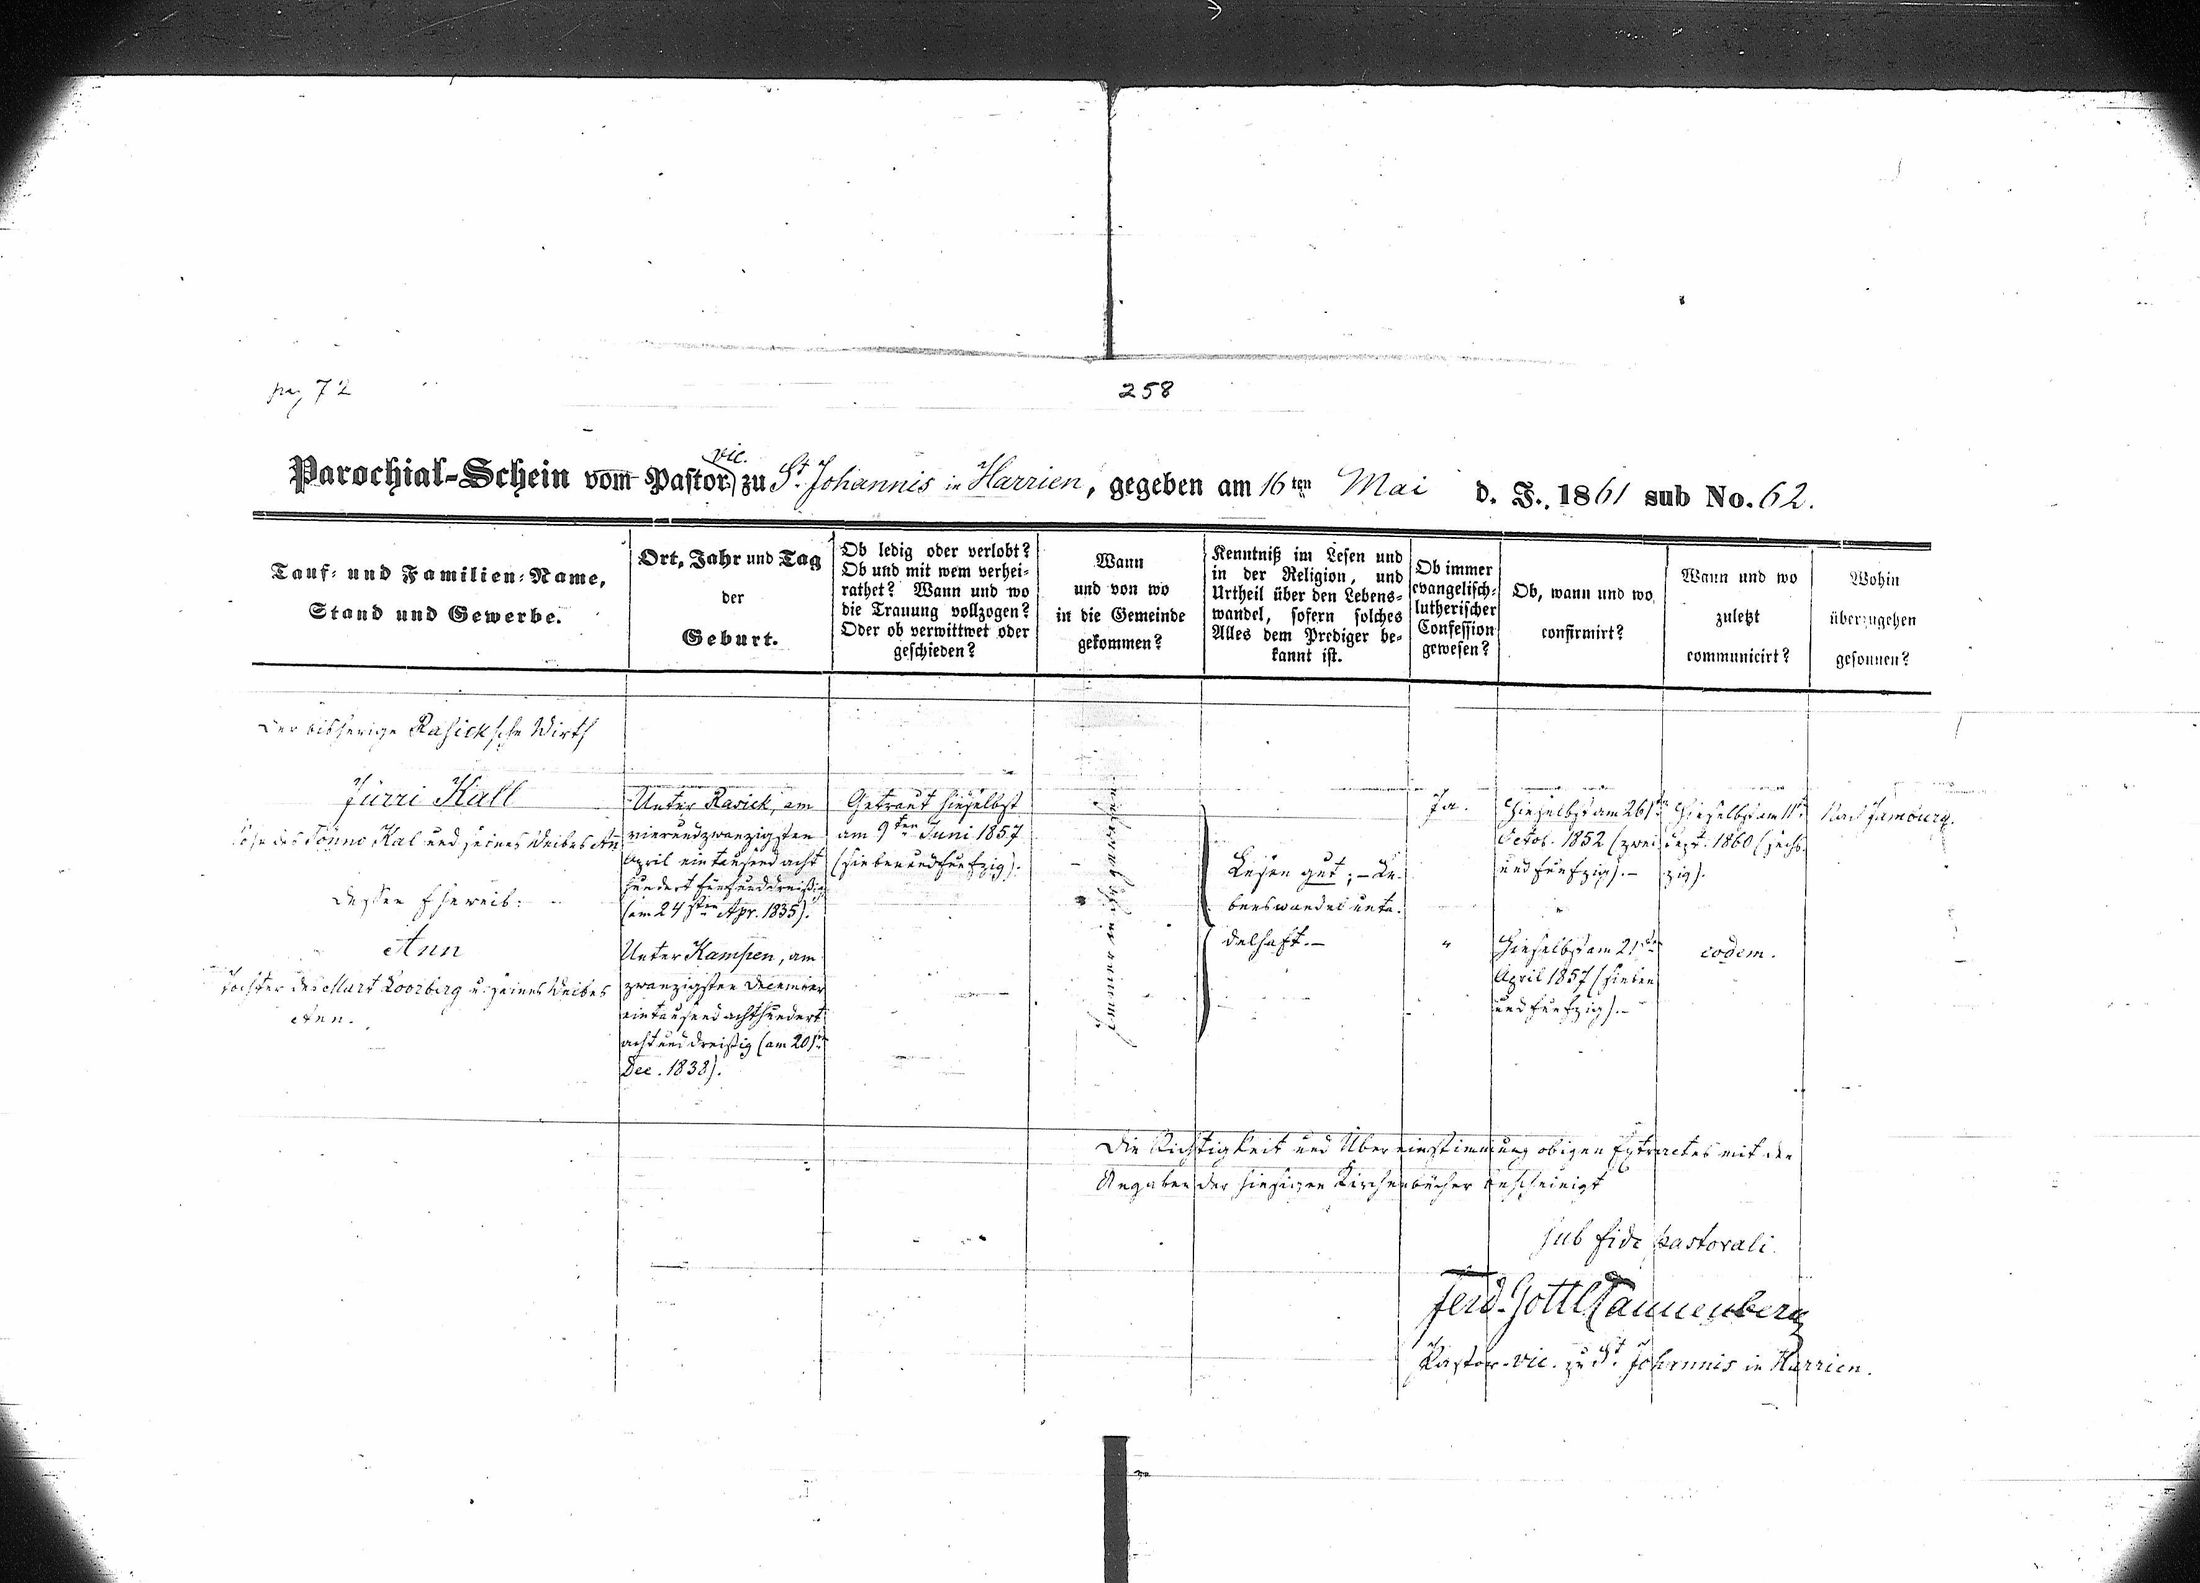 pag 72
258
Parochial-Schein vom Pastor vic. zu St. Johannis in Harrien, gegeben am 16ten Mai d. J. 1861 sub No. 62.
Tauf- und Familien-Name,
Stand und Gewerbe.
Ort, Jahr und Tag
der
Geburt.
Ob ledig oder verlobt?
Ob und mit wem verhei-
rathet? Wann und wo
die Trauung vollzogen?
Oder ob verwittwet oder
geschieden?
Wann
und von wo
in die Gemeinde
gekommen?
Kenntniß im Lesen und
in der Religion, und
Urtheil über den Lebens-
wandel, sofern solches
Alles dem Prediger be-
kannt ist.
Ob immer
evangelisch-
lutherischer
Confession
gewesen?
Ob, wann und wo
confirmirt?
Wann und wo
zuletzt
communicirt?
Wohin
überzugehen
gesonnen?
Der bisherige Rasicksche Wirth
Jürri Kall
Sohn des Tönno Kal und seines Weibes An
Unter Rasick, am
vierundzwanzigsten
April eintausend acht
hundert fünfunddreißig
(am 24sten Apr. 1835).
Getraut hieselbst
am 9ten Juni 1857
(siebenundfunfzig).
immer in der gewesen
Lesen gut; – Le-
benswandel unta-
delhaft. –
Ja.
Hieselbst am 26ten
Octob. 1852 (zwei
und funfzig). –
Hieselbst am 11ten
Sept. 1860 (sech-
zig).
Nach Jamburg.
Dessen Eheweib:
Ann
Tochter des Mart Loorberg u. seines Weibes
Ann.
Unter Kampen, am
zwanzigsten December
eintausend achthundert
acht und dreißig (am 20sten
Dec. 1838).
"
Hieselbst am 21sten
April 1857 (sieben
und funfzig). –
eodem.
Die Richtigkeit und Übereinstimmung obigen Extractes mit den
Angaben der hiesigen Kirchenbücher bescheinigt
sub fide pastorali
Ferd. Gottl. Tannenberg
Pastor-vic. zu St. Johannis in Harrien.